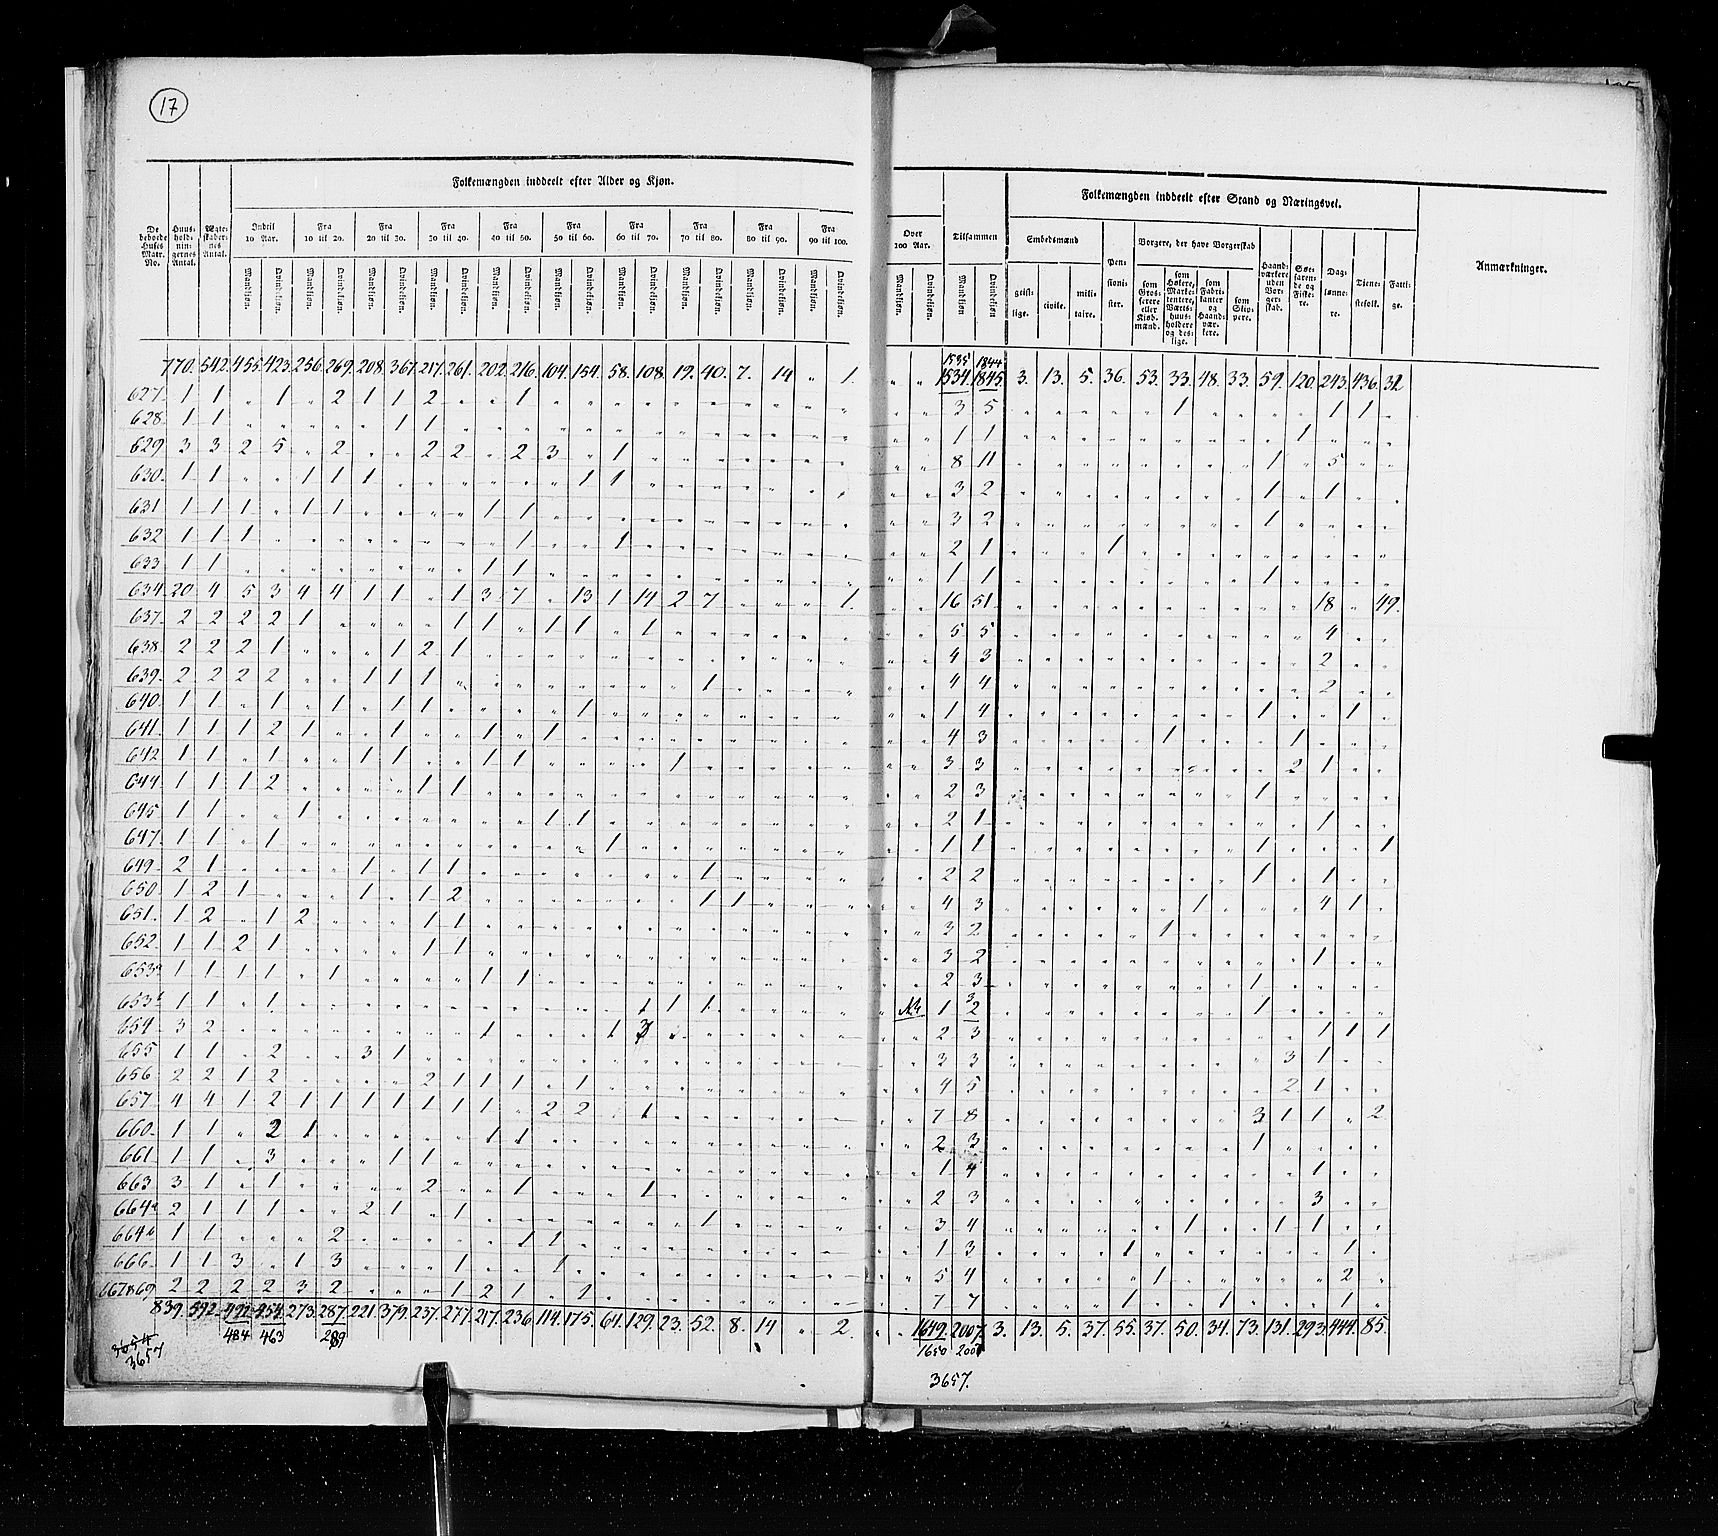 17
Folkemængden inddeelt efter Alder og Kjøn.
Folkemængden inddeelt efter Stand og Næringsvei.
Anmærkninger.
De beboede Huses Matr. No.
Huus-hold-nin-gernes Antal.
Ægte-skaber-nes Antal.
Indtil 10 Aar.
Fra 10 til 20.
Fra 20 til 30.
Fra 30 til 40.
Fra 40 til 50.
Fra 50 til 60.
Fra 60 til 70.
Fra 70 til 80.
Fra 80 til 90.
Fra 90 til 100.
Over 100 Aar.
Tilsammen
Mandkjøn. Qvindekjøn.
Embedsmænd
geist-lige.
civile.
mili-taire.
Pen-sioni-ster.
Borgere, der have Borgerskab
som Gros-serere eller Kjøb-mænd.
som Høkere, Marke-tentere, Værts-huus-holdere og des-lige.
som Fabri-kanter og Haand-vær-kere.
som Skip-pere.
Haand-værkere uden Bor-ger-skab.
Søe-faren-de og Fiske-re.
Dag-lønne-re.
Tjene-stefolk.
Fatti-ge.
1535 1844
770. 542. 455. 423. 256. 269. 208. 367. 217. 261. 202. 216. 104. 154. 58. 108. 19. 40. 7. 14 " 1. " " 1534. 1845. 3. 13. 5. 36. 53. 33. 48. 33. 59. 120. 243. 436. 32
627. 1 1 " 1 " 2 1 1 2 " " 1 3 5 1 1 1
628. 1 1 1 1 1 1 1
629 3 3 2 5 " 2 " " 2 2 " 2 3 " 1 8 11 1 " 5
630. 1 1 " " 1 1 1 1 1 3 2 1 " 1
631 1 1 1 " 1 1 1 1 3 2 1
632 1 1 1 1 1 2 1 1
633 1 1 1 1 1 1 1
634 20 4 5 3 4 4 1 1 " 1 3 7 " 13 1 14 2 7 1. 16 51 18 " 49.
637. 2 2 2 2 1 1 1 " 1 1 " 1 5 5 4
638 2 2 2 1 1 2 1 4 3 2
639. 2 2 2 2 " " 1 1 1 1 4 4 2
640. 1 1 " 1 " 1 " 1 1 1 1 4 1 " " 1
641. 1 1 1 2 1 " " 1 " " 1 " 1 4 3 1 1
642 1 1 " 1 " " 1 1 " " 1 1 1 3 3 2 1
644. 1 1 1 2 1 1 2 3 1
645 1 1 " " 1 1 1 2 1 1
647. 1 1 " 1 1 1 1 1 1
649. 2 1 1 " 1 1 1 2 2 1 " 1
650 1 2 1 1 " 1 2 1 1 4 3 1 4 1
651. 1 2 " 1 2 1 1 3 2 1
652. 1 1 2 1 1 1 3 2 1
653a 1 1 1 1 " 1 1 1 2 3 1
653b 1 1 " 1 1 1 1 1 2 1
3
654. 3 2 1 1 3 2 3 1 1 1
655 1 1 " 2 " " 3 1 3 3 3 1
656 2 2 1 2 2 1 1 1 " 1 4 5 2 1
657 4 4 1 2 1 1 1 1 1 1 1 " 2 2 1 7 8 3 1 1 " 2
660. 1 1 " 2 1 1 1 2 3 1
661 1 1 " 3 1 1 1 4 1
663 3 1 " 1 2 " " 1 1 2 3 3
664a 2 1 1 1 " " 2 1 " 1 1 3 4 1 1 1
664b 1 1 2 1 1 1 3 1 1
666. 1 1 3 " 1 3 1 1 5 4 1 2
667&69 2 2 2 2 3 2 1 2 1 " 7 7 1 1 1
839. 592. 492. 454. 273. 287. 221. 379. 237. 277. 217. 236. 114. 175. 64. 129. 23. 52. 8. 14 " 2. " " 1649. 2007. 3. 13. 5. 37. 55. 37. 50. 34. 73. 131. 293. 444. 85.
484 463 289 1650
3654
3657
3657.